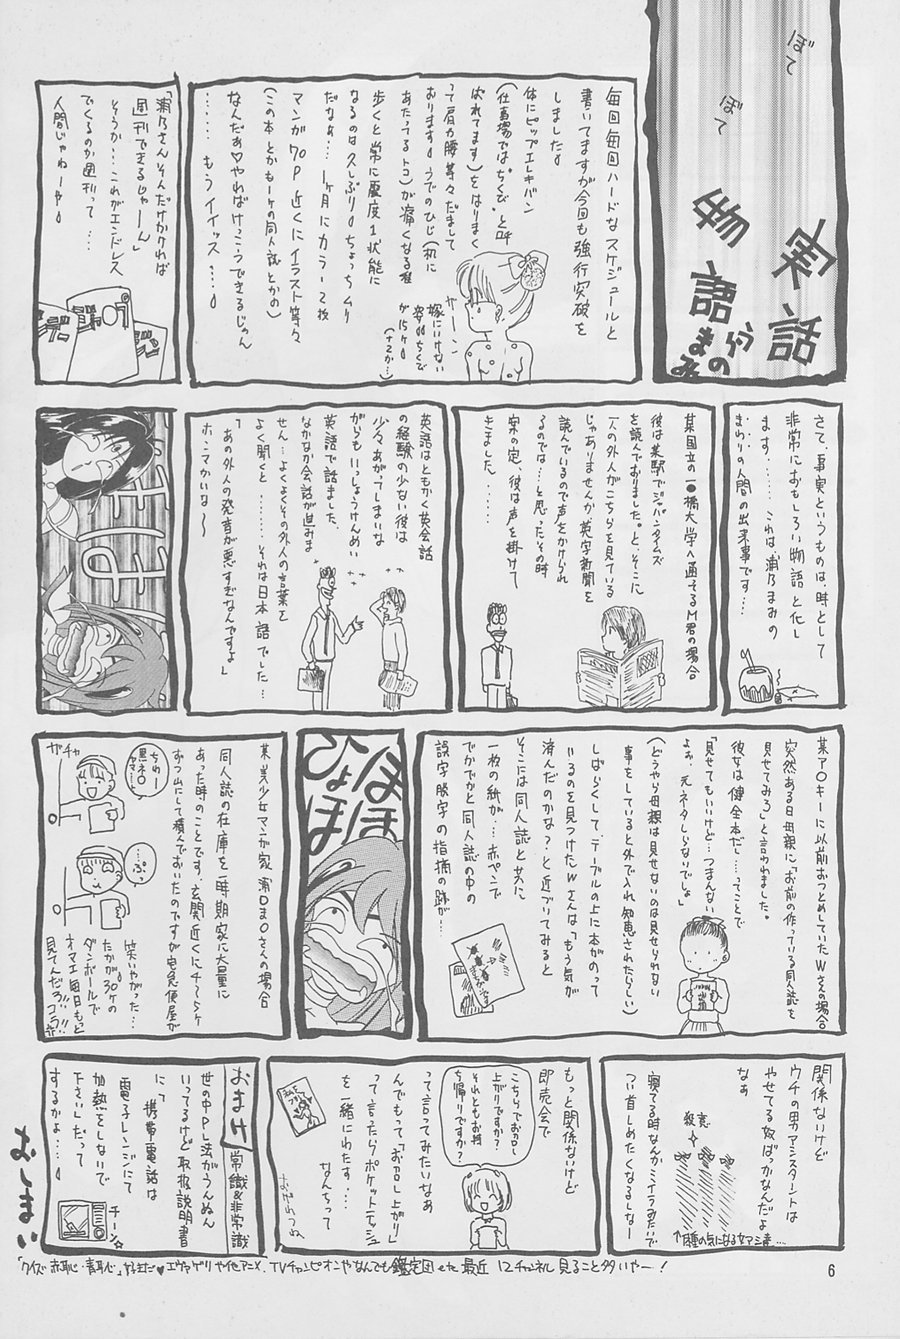 ぼて
ぼて
実話
物語
浦乃
まみの
毎回毎回ハードなスケジュールと
書いてますが今回も強行突破を
しました。
体にピップエレキバン
(仕事場では"ちくび"と呼
ばれてます)をはりまく
って肩から腰等々だまして
おります。うでのひじ(机に
あたってるトコ)が痛くなる程
歩くと常に震度1状態に
なるのは久しぶり。ちょっちムリ
だなぁ…。1ヶ月にカラー2枚
マンガ70P近くにイラスト等々
(この本とかもー1ヶの同人誌とかの)
なんだぁ♡やればけっこうできるじゃん
……もうイイッス…。
ザーン
嫁にいけない
姿。。ちくび
が15ヶ。
(+2か…)
「浦乃さんそんだけかければ
週刊できるじゃーん」
そうか…これがエンドレス
でくるのか週刊って…
人間じゃねーや。
さて、事実というものは、時として
非常におもしろい物語と化し
ます……これは浦乃まみの
まわりの人間の出来事です…
某国立の一●橋大学へ通ってるM君の場合
彼は某駅でジャパンタイムズ
を読んでおりました。と、そこに
一人の外人がこちらを見ている
じゃありませんか英字新聞を
読んでいるので声をかけられ
るのでは…と思ったその時
案の定、彼は声を掛けて
きました……
英語はともかく英会話
の経験の少ない彼は
少々あがってしまいな
がらもいっしょうけんめい
英語で話ました、
なかなか会話が進みま
せん…よくよくその外人の言葉を
よく聞くと……それは日本語でした…
「あの外人の発音が悪すぎなんですよ」
ホンマかいな〜
某ア○キーに以前おつとめしていたWさんの場合
突然ある日母親に「お前の作っている同人誌を
見せてみろ」と言われました。
彼女は健全本だし…ってことで
「見せてもいいけど…つまんない
よぉ、元ネタしらないでしょ」
(どうやら母親は見せないのは見せられない
事をしていると外で入れ知恵されたらしい)
しばらくして、テーブルの上に本がのって
いるのを見つけたWさんは「もう気が
済んだのかな?」と近づいてみると
そこには同人誌と共に
一枚の紙が…赤ペンで
でかでかと同人誌の中の
誤字脱字の指摘の跡が…
ひょほほほ
某美少女マンガ家浦○ま○さんの場合
同人誌の在庫を一時期家に大量に
あった時のことです。玄関近くに4〜5ヶ
ずつ山にして積んでおいたのですが宅急便屋が
ガチャ
ちわー
黒ネ○
ヤマ…
…ぷ
笑いやがった…
たかが30ヶの
ダンボールで
オマエ毎日もっと
見てんだろ!!コラ!!
関係ないけど
ウチの男アシスタントは
やせてる奴ばっかなんだよ
なぁ
寝てる時なんかミイラみたいで
つい首しめたくなるしなー
殺意
もっと関係ないけど
即売会で
こちらでお召し
上がりですか?
それともお持
ち帰りですか?
って言ってみたいなぁ
んでもって「お召し上がり」
って言ったらポケットティッシュ
を一緒にわたす…
なんちって
おまけ
常識&非常識
世の中PL法がうんぬん
いってるけど取扱説明書
に
携帯電話は
電子レンジにて
加熱をしないで
下さいしだって
するかよ…。
チーン☆
おしまい
「クイズ赤恥・青恥」、エヴァゲリや他アニメ、TVチャンピオンやなんでも鑑定団etc最近12チャンネル見ること多いやー!
6